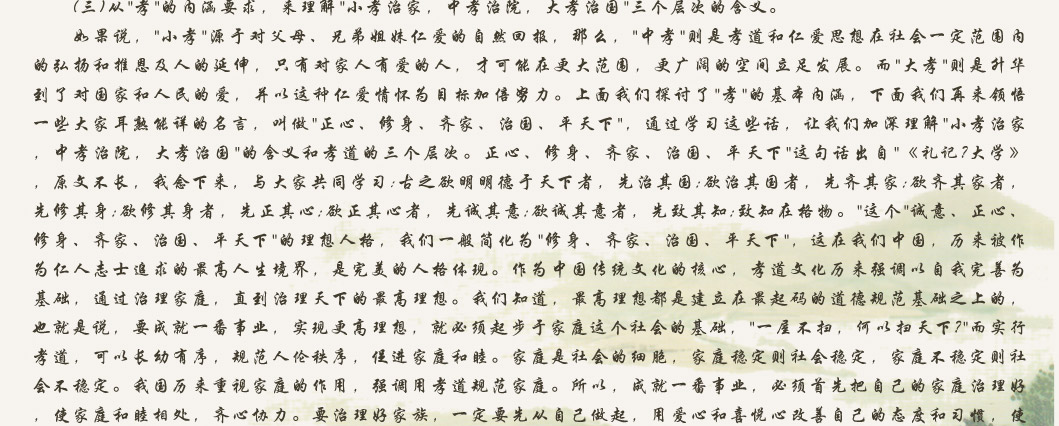 (三)从"孝"的内涵要求，来理解"小孝治家，中孝治院，大孝治国"三个层次的含义。
如果说，"小孝"源于对父母、兄弟姐妹仁爱的自然回报，那么，"中孝"则是孝道和仁爱思想在社会一定范围内
的弘扬和推恩及人的延伸，只有对家人有爱的人，才可能在更大范围，更广阔的空间立足发展。而"大孝"则是升华
到了对国家和人民的爱，并以这种仁爱情怀为目标加倍努力。上面我们探讨了"孝"的基本内涵，下面我们再来领悟
一些大家耳熟能详的名言，叫做"正心、修身、齐家、治国、平天下"，通过学习这些话，让我们加深理解"小孝治家
，中孝治院，大孝治国"的含义和孝道的三个层次。正心、修身、齐家、治国、平天下"这句话出自"《礼记?大学》
，原文不长，我念下来，与大家共同学习:古之欲明明德于天下者，先治其国;欲治其国者，先齐其家;欲齐其家者，
先修其身;欲修其身者，先正其心;欲正其心者，先诚其意;欲诚其意者，先致其知;致知在格物。"这个"诚意、正心、
修身、齐家、治国、平天下"的理想人格，我们一般简化为"修身、齐家、治国、平天下"，这在我们中国，历来被作
为仁人志士追求的最高人生境界，是完美的人格体现。作为中国传统文化的核心，孝道文化历来强调以自我完善为
基础，通过治理家庭，直到治理天下的最高理想。我们知道，最高理想都是建立在最起码的道德规范基础之上的，
也就是说，要成就一番事业，实现更高理想，就必须起步于家庭这个社会的基础，"一屋不扫，何以扫天下?"而实行
孝道，可以长幼有序，规范人伦秩序，促进家庭和睦。家庭是社会的细胞，家庭稳定则社会稳定，家庭不稳定则社
会不稳定。我国历来重视家庭的作用，强调用孝道规范家庭。所以，成就一番事业，必须首先把自己的家庭治理好
，使家庭和睦相处，齐心协力。要治理好家族，一定要先从自己做起，用爱心和喜悦心改善自己的态度和习惯，使